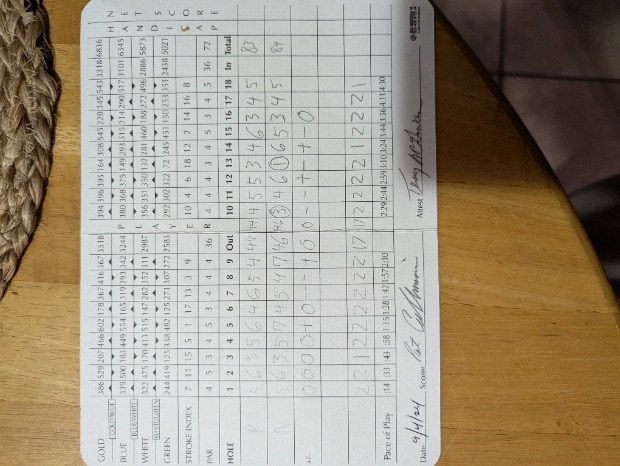 GOLD 386 529 207 466 602 178 367 416 367 3518 394 396 395 164 308 545 228 345 543 3318 6836
GOLD/BLUE
BLUE 339 500 183 449 554 165 319 393 342 3244 380 368 375 149 293 515 214 290 517 3101 6345
BLUE/WHITE
WHITE 322 475 170 413 515 147 282 352 311 2987 356 351 350 132 281 460 188 272 496 2886 5873
WHITE/GREEN
GREEN 244 419 125 338 482 125 271 307 272 2583 292 302 322 72 245 451 150 253 351 2438 5021
PLAYER
HANDICAP
NET SCORE
STROKE INDEX 7 11 15 5 1 17 13 3 9 10 4 6 18 12 2 14 16 8
PAR 4 5 3 4 5 3 4 4 4 36 4 4 4 3 4 5 3 4 5 36 72
HOLE 1 2 3 4 5 6 7 8 9 Out 10 11 12 13 14 15 16 17 18 In Total
P 5 6 3 5 6 4 6 5 4 44 4 5 5 3 4 6 3 4 5 83
6 3 5 7 4 5 4 7 46 3 4 6 1 6 5 3 4 5 84
+/- 0 0 0 + 0 - - - + 0 0 - - + - + - 0
2 2 1 2 2 2 2 2 2 17 2 2 2 2 2 1 2 2 2 1
Pace of Play :14 :33 :43 :58 1:15 1:28 1:42 1:57 2:10 2:29 2:44 2:59 3:10 3:24 3:44 3:56 4:11 4:30
Date 9/4/24 Scorer Attest